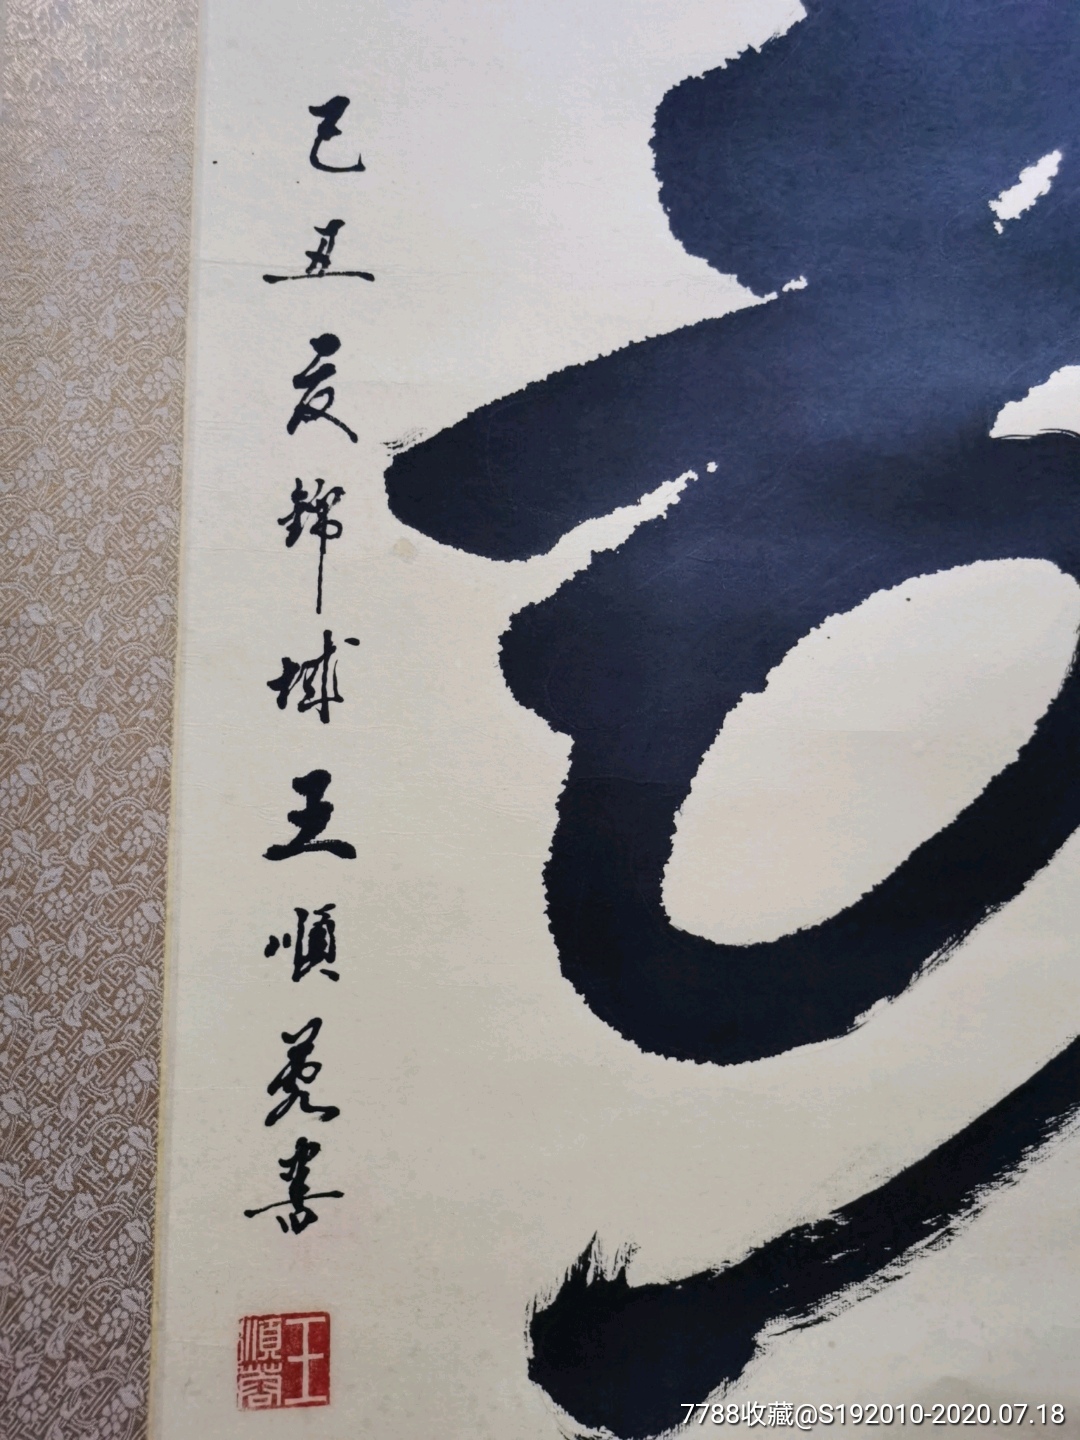 己丑夏錦城王順蓉書
王順蓉
7788收藏@S192010-2020.07.18